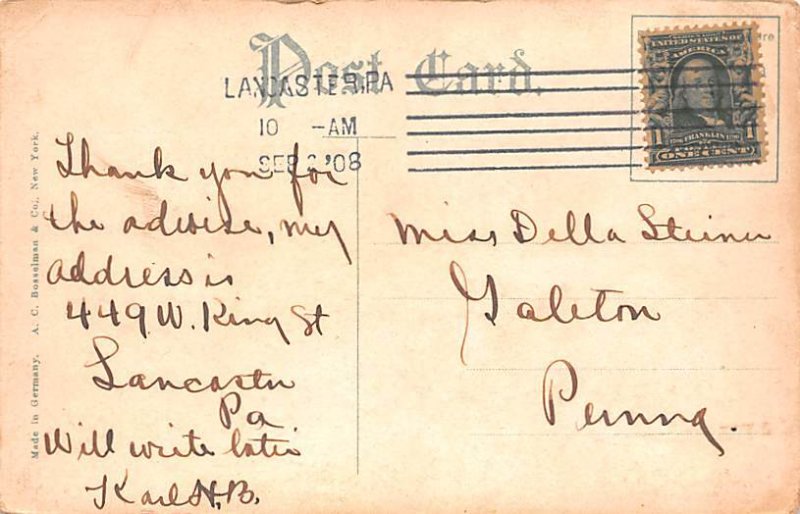 Post Card.
LANCASTER, PA
10 -AM
SEP '08
SERIES 1902
UNITED STATES OF
AMERICA
FRANKLIN
1 ONE CENT 1
Thank you for
the advise, my
address is
449 W. King St
Lancaster
Pa
Will write later
Karl H. B.
Miss Della Steiner
Galeton
Penna.
Made in Germany. A. C. Bosselman & Co., New York.